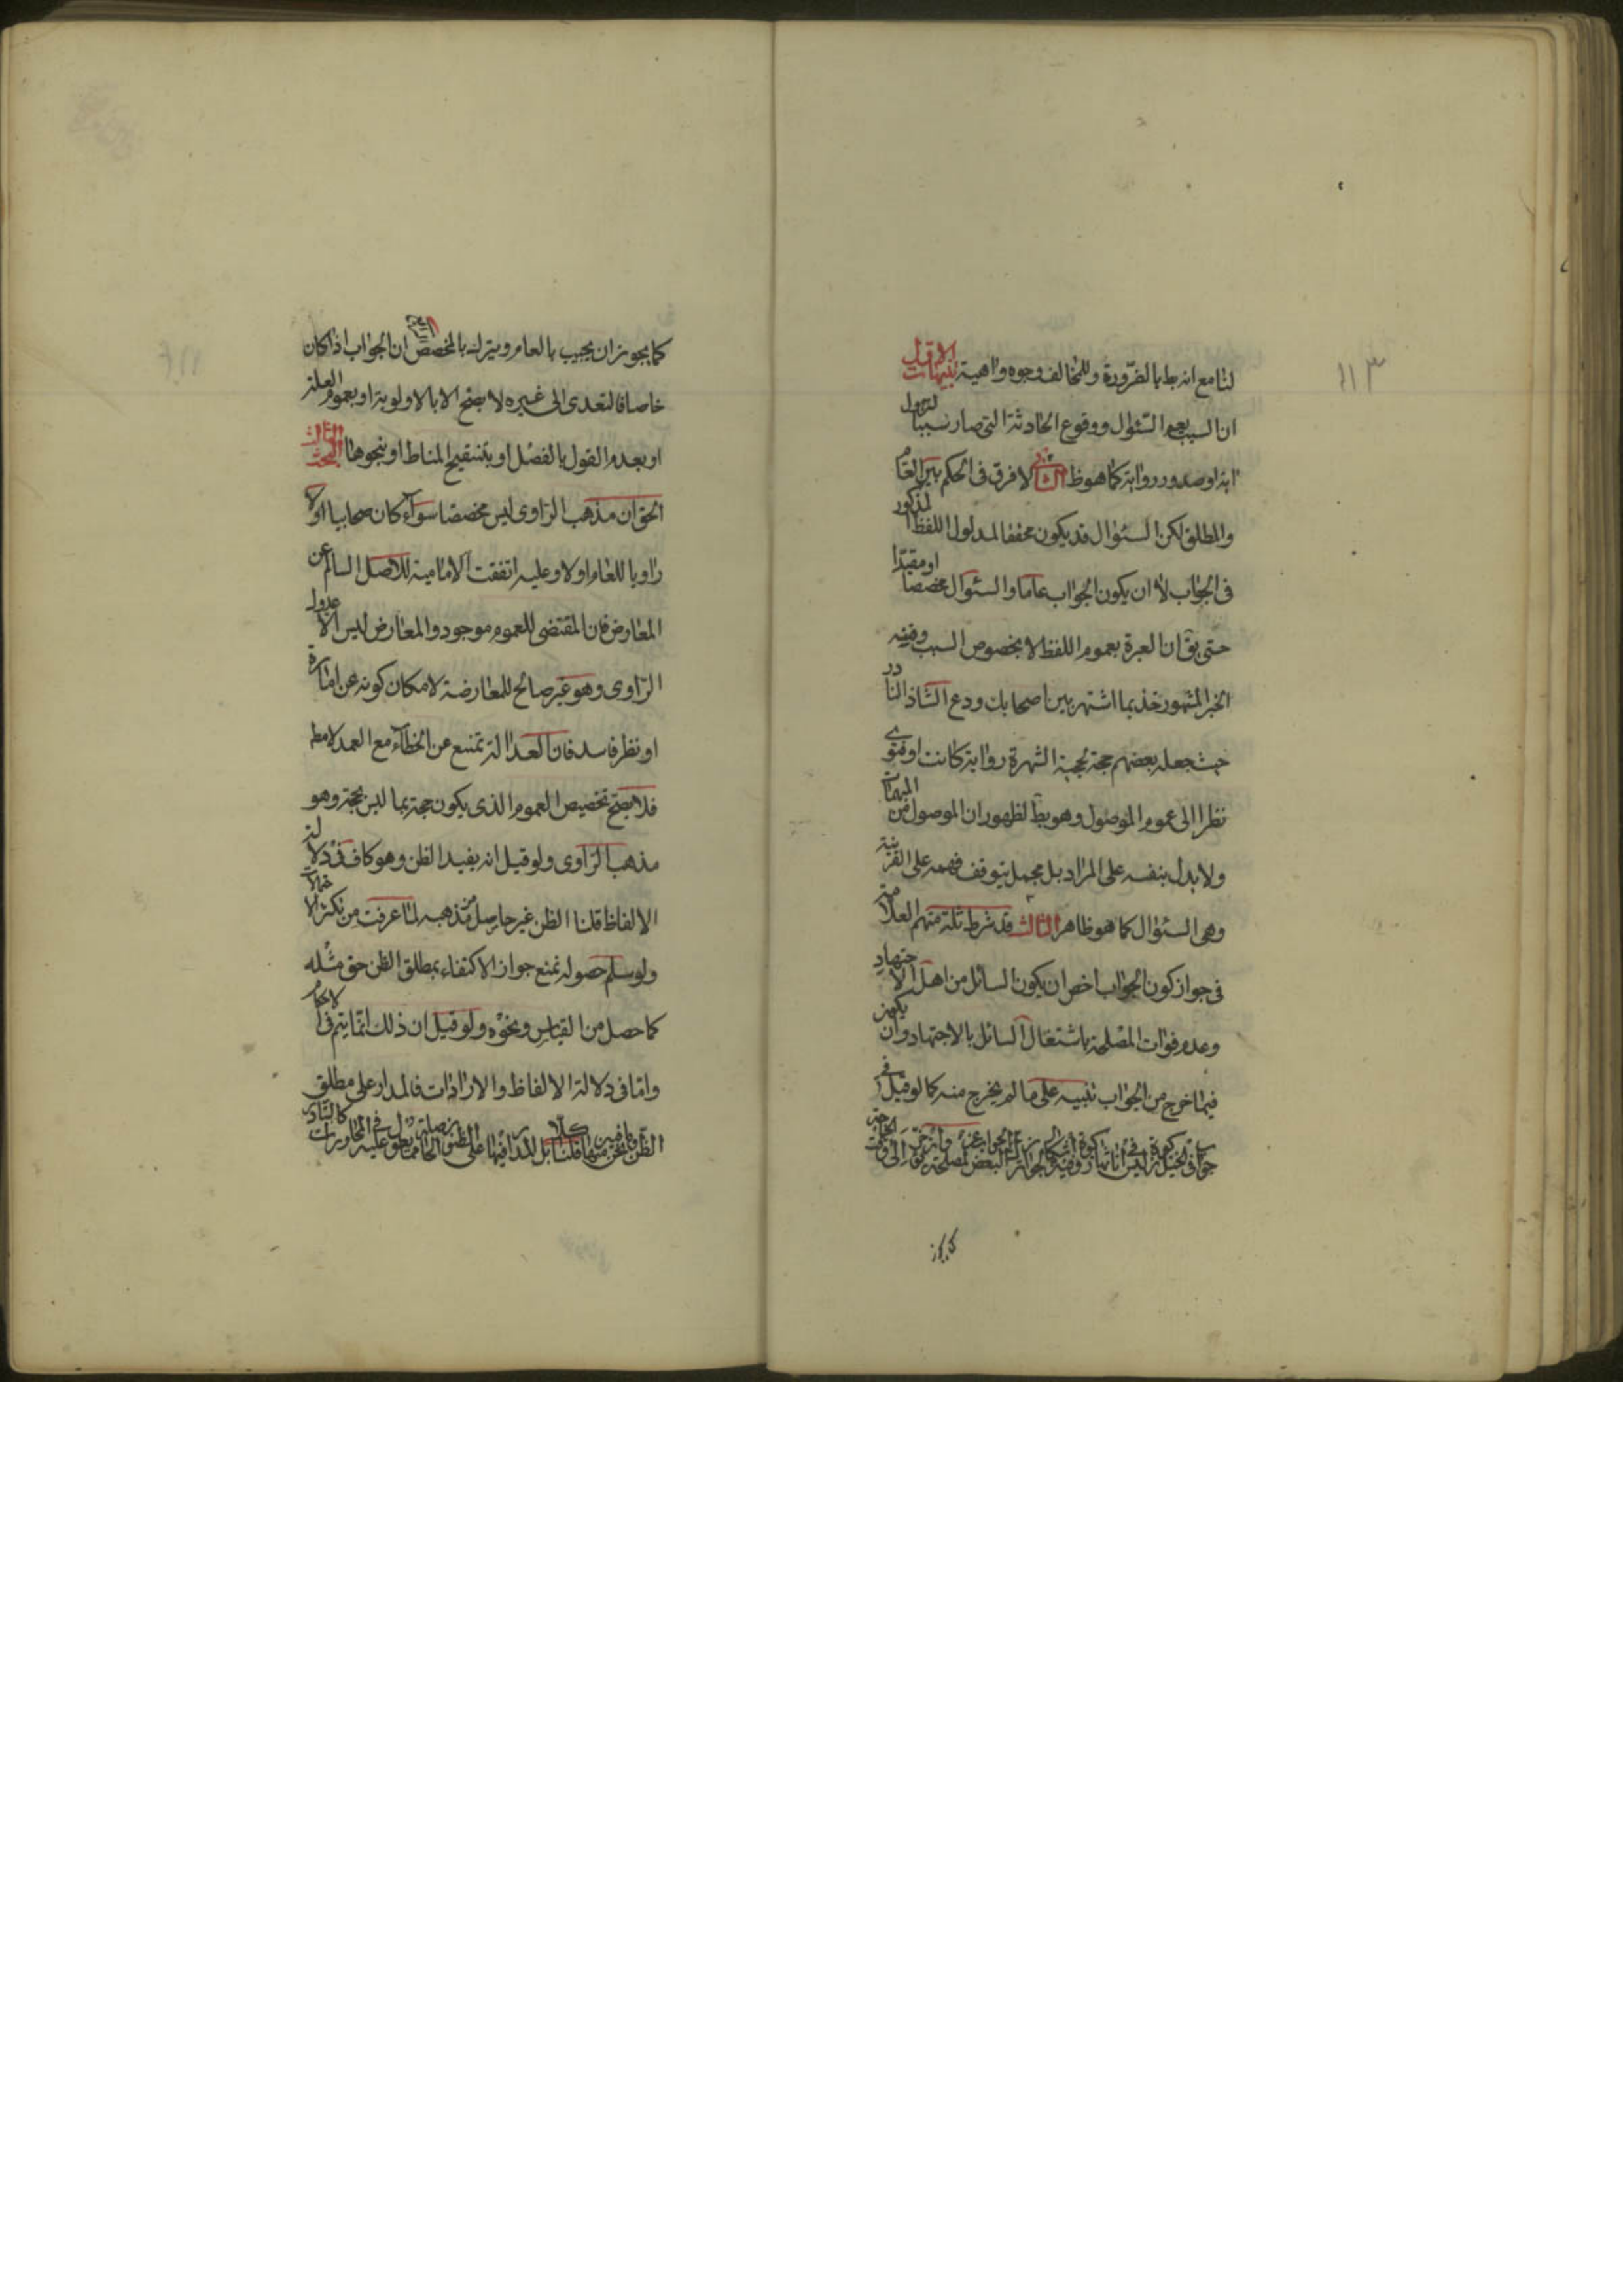 ١١٣
لنا مع انه بط بالضرورة وللمخالف وجوه واهية تنبيهات الاول
ان السبب يعم السئوال ووقوع الحادثة التى صار سببا لنزول
اية او صدور رواية كما هو ظ الثانى لا فرق فى الحكم بين العام
والمطلق لكن السئوال قد يكون محققا لمدلول اللفظ المذكور
فى الجواب لا ان يكون الجواب عاما والسئوال مخصصا او مقيدا
حتى يق ان العبرة بعموم اللفظ لا بخصوص السبب ومنه
الخبر المشهور خذ بما اشتهر بين اصحابك ودع الشاذ النادر
حيث جعله بعضهم حجة لحجية الشهرة رواية كانت او فتوى
نظرا الى عموم الموصول وهو بط لظهور ان الموصول من المبهمات
ولا يدل بنفسه على المراد بل مجمل يتوقف فهمه على القرينة
وهى السئوال كما هو ظاهر الثالث قد شرط ثلة منهم العلامة
فى جواز كون الجواب اخص ان يكون السائل من اهل الاجتهاد
وعدم فوات المصلحة باشتغال السائل بالاجتهاد وان يكون
فيما خرج من الجواب تنبيه على ما لم يخرج منه كما لو قيل فى
جواب فى الخيل زكوة ليس فى اناثها زكوة البعض لمصلحة الى وقت الحاجة
كما يجوز
كما يجوز ان يجيب بالعام ويترك بالمخصص الرابع ان الجواب اذا كان
خاصا فالتعدى الى غيره لا يصح الا بالاولوية او بعموم العلة
او بعدم القول بالفصل او بتنقيح المناط او نحوها البحث الثالث
الحق ان مذهب الراوى ليس مخصصا سواء كان صحابيا اولا
راويا للعام اولا وعليه اتفقت الامامية للاصل السالم عن
المعارض فان المقتضى للعموم موجود والمعارض ليس الا عدول
الراوى وهو غير صالح للمعارضة لامكان كونه عن امارة
او نظر فاسد فان العدالة تمنع عن الخطاء مع العمد لا مط
فلا يصح تخصيص العموم الذى يكون حجة بما ليس بحجة وهو
مذهب الراوى ولو قيل انه يفيد الظن وهو كاف فى دلالة
الالفاظ قلنا الظن غير حاصل من مذهبه لما عرفت من تكثر الاحتمال
ولو سلم حصوله نمنع جواز الاكتفاء بمطلق الظن حق مثله
كما حصل من القياس ونحوه ولو قيل ان ذلك انما يتم فى الاحكام
واما فى دلالة الالفاظ والارادات فالمدار على مطلق
الظن وما نحن فيه منها قلنا كلا بل المدار فيها على الظن الحاصل عليه فى المحاورات